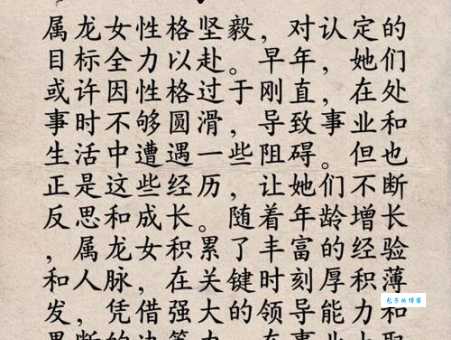 属龙女性格坚毅，对认定的
目标全力以赴。早年，她们
或许因性格过于刚直，在处
事时不够圆滑，导致事业和
生活中遭遇一些阻碍。但也
正是这些经历，让她们不断
反思和成长。随着年龄增长
，属龙女积累了丰富的经验
和人脉，在关键时刻厚积薄
发，凭借强大的领导能力和